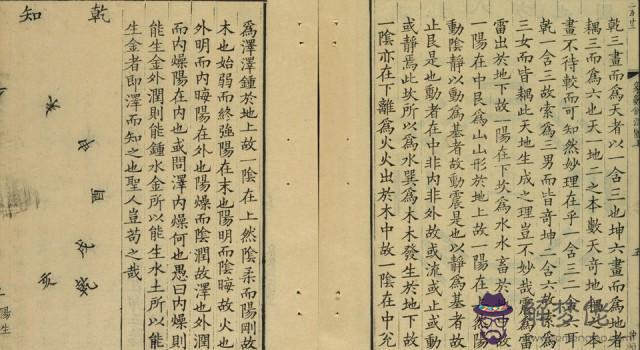 乾三畫而為天者以一含三也坤六畫而為地者
耦三而為六也天一地二之本數天奇地耦
畫不待較而可知然妙理在乎一含三二含
乾一含三故索為三男而皆奇坤二含六故索為
三女而皆耦此天地生成之理豈不妙哉震為雷
雷出於地下故一陽在下坎為水水畜於
一陽在中艮為山山形於地上故一陽在上然陽
動陰靜以動為基者故動震是也以靜為基者故
止艮是也動者在中非內非外故或流或止或動
或靜焉此坎所以為水巽為木木發生於地下故
一陰亦在下離為火火出於木中故一陰在中兌
為澤澤鍾於地上故一陰在上然陰柔而陽剛故
木也始弱而終強陽在末也陽明而陰晦故火也
外明而內晦陽在外也陽燥而陰潤故澤也外潤
而內燥陽在內也或問澤內燥何也愚曰內燥則
能生金外潤則能鍾水金所以能生水土所以能
生金者即澤而知之也聖人豈苟之哉
乾
知
酉
亥
陽生
解夢佬